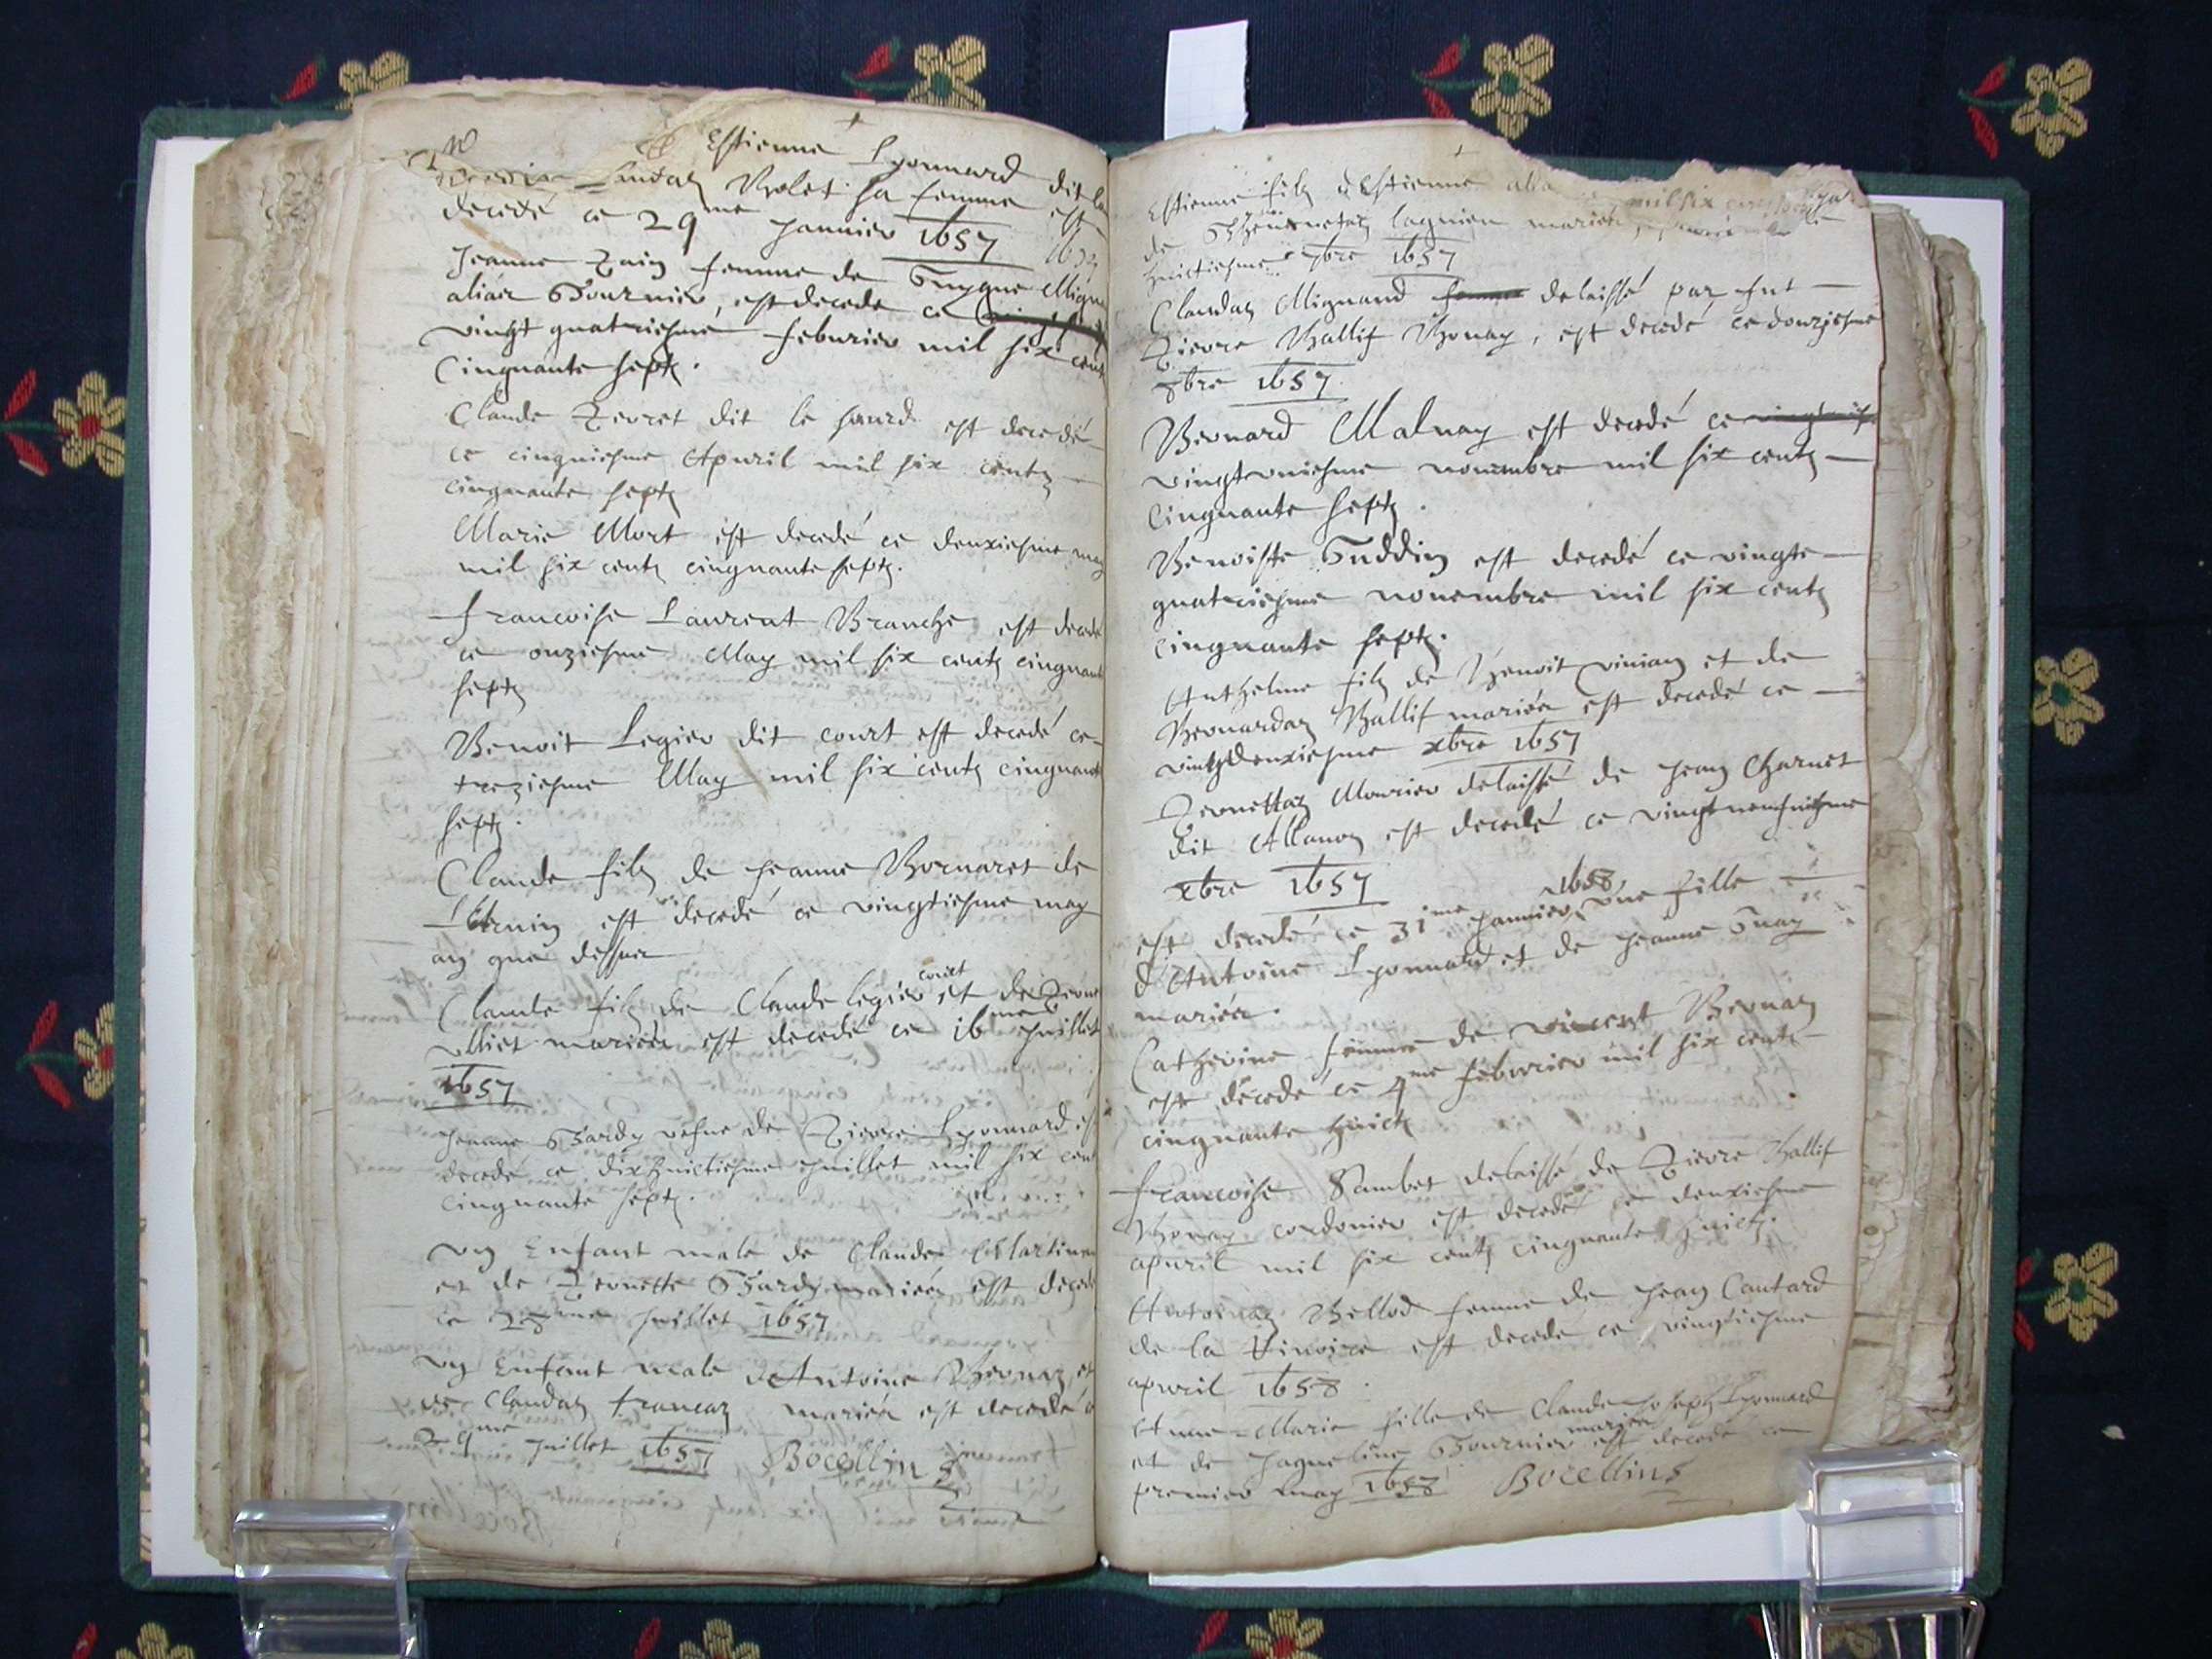 Estienne Lyonnard dit la
Claudaz Rolet sa femme est
decedé ce 29me Janvier 1657
Jeanne femme de Guygue Mign
aliàs Fournier, est decede ce
vingt quatriesme febvrier mil six cent
Cinquante sept.
Claude Pevret dit le sourd est decedé
ce cinquiesme Apvril mil six centz
cinquante septz
Marie Mort est decedé ce deuxiesme may
mil six centz cinquante septz.
francoise Laurent Branche est decede
ce onziesme May mil six centz cinquant
septz
Benoit Legier dit court est decedé ce
treziesme May mil six centz cinquant
septz.
Claude filz de Jeanne Bornaret de
est decedé ce vingtiesme may
an que dessus
Claude filz de Claude legier court et de Perne
ulliet mariés est decedé ce 16me Juillet
1657
Jeanne Gardy vefue de Pierre Lyonnard es
decedé ce dix huictiesme Juillet mil six cen
cinquante septz.
un Enfant male de Claude Martin
et de Pernette Gardy mariés est decede
ce 28me Juillet 1657
un Enfant male d'Antoine Bernaz et
de Claudaz francaz mariés est decedé c
29me Juillet 1657 Bocellin
Estienne filz d'Estienne mil six cens
de lagnieu mariés
huictiesme 7bre 1657
Claudaz Mignard femme delaissé par fut
Pierre Ballif Bonay, est decedé ce douziesme
8bre 1657.
Bernard Malnay est decedé ce
vingtuniesme novembre mil six centz
Cinquante septz.
Benoiste Guddin est decedé ce vingte
quatriesme novembre mil six centz
cinquante septz.
Anthelme filz de Benoit vivian et de
Bernardaz Ballif mariés est decedé ce
vintgdeuxiesme xbre 1657
Pernettaz Mourier delaissé de Jean Charvet
dit Allanon est decedé ce vingtneufviesme
xbre 1657
est decedé ce 31me Janvier 1658, une fille
d'Antoine Lyonnard et de Jeanne Guay
mariés.
Catherine femme de vincent Bernaz
est decedé ce 4me febvrier mil six centz
cinquante huictz
francoise Sambet delaissé de Pierre Ballif
Bonay cordonier est decedé ce deuxiesme
apvril mil six centz cinquante huictz.
Antoinaz Bellod femme de Jean Cantard
de la est decedé ce vingtiesme
apvril 1658.
Anne-Marie fille de Claude Joseph Lyonnard
et de Jaqueline Fournier mariés est decedé ce
premier may 1658 Bocellins